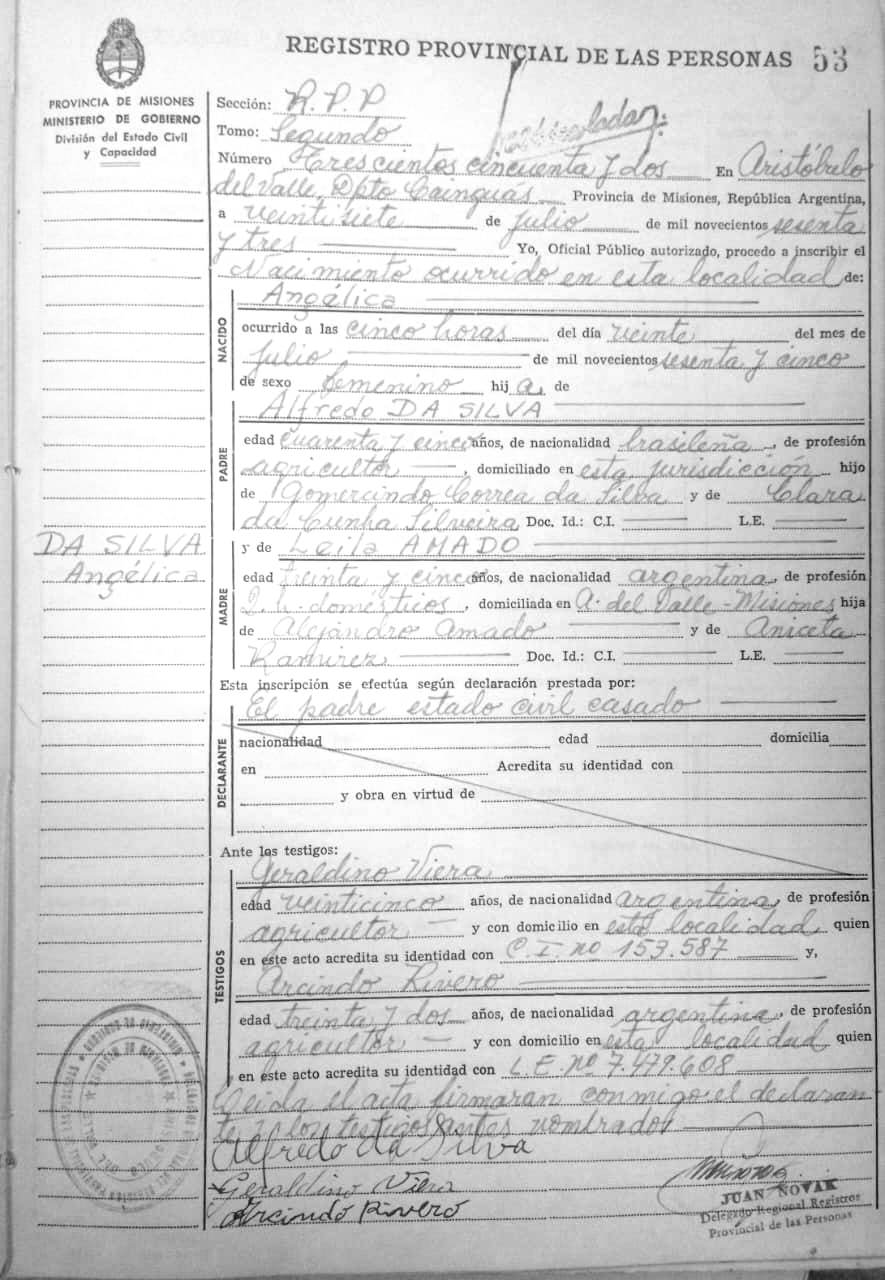 REGISTRO PROVINCIAL DE LAS PERSONAS 53
PROVINCIA DE MISIONES
MINISTERIO DE GOBIERNO
División del Estado Civil
y Capacidad
Sección: R. P. P
Tomo: Segundo
Número Trescientos cincuenta y dos En Aristóbulo
del Valle, Dpto Cainguas Provincia de Misiones, República Argentina,
a veintisiete de julio de mil novecientos sesenta
y tres Yo, Oficial Público autorizado, procedo a inscribir el
Nacimiento ocurrido en esta localidad de:
NACIDO
Angélica
ocurrido a las cinco horas del día veinte del mes de
julio de mil novecientos sesenta y cinco
de sexo femenino hij a de
PADRE
Alfredo DA SILVA
edad cuarenta y cinco años, de nacionalidad brasileña, de profesión
agricultor, domiciliado en esta jurisdicción hijo
de Gomercindo Correa da Silva y de Clara
da Cunha Silveira Doc. Id.: C.I. L.E.
DA SILVA
Angélica
MADRE
y de Leila AMADO
edad treinta y cinco años, de nacionalidad argentina, de profesión
Q. h. domésticos, domiciliada en A. del Valle-Misiones hija
de Alejandro Amado y de Aniceta
Ramirez Doc. Id.: C.I. L.E.
Esta inscripción se efectúa según declaración prestada por:
El padre estado civil casado
DECLARANTE
nacionalidad edad domicilia
en Acredita su identidad con
y obra en virtud de
Ante los testigos:
TESTIGOS
Geraldino Viera
edad veinticinco años, de nacionalidad argentina, de profesión
agricultor y con domicilio en esta localidad, quien
en este acto acredita su identidad con C.I. no 153.587 y,
Arcindo Rivero
edad treinta y dos años, de nacionalidad argentina, de profesión
agricultor y con domicilio en esta localidad quien
en este acto acredita su identidad con L.E. Nº 7.479.608
Leida el acta firmaran conmigo el declaran
te y los testigos antes nombrados
Alfredo da Silva
Geraldino Viera
Arcindo Rivero
JUAN NOVAK
Delegado Regional Registros
Provincial de las Personas